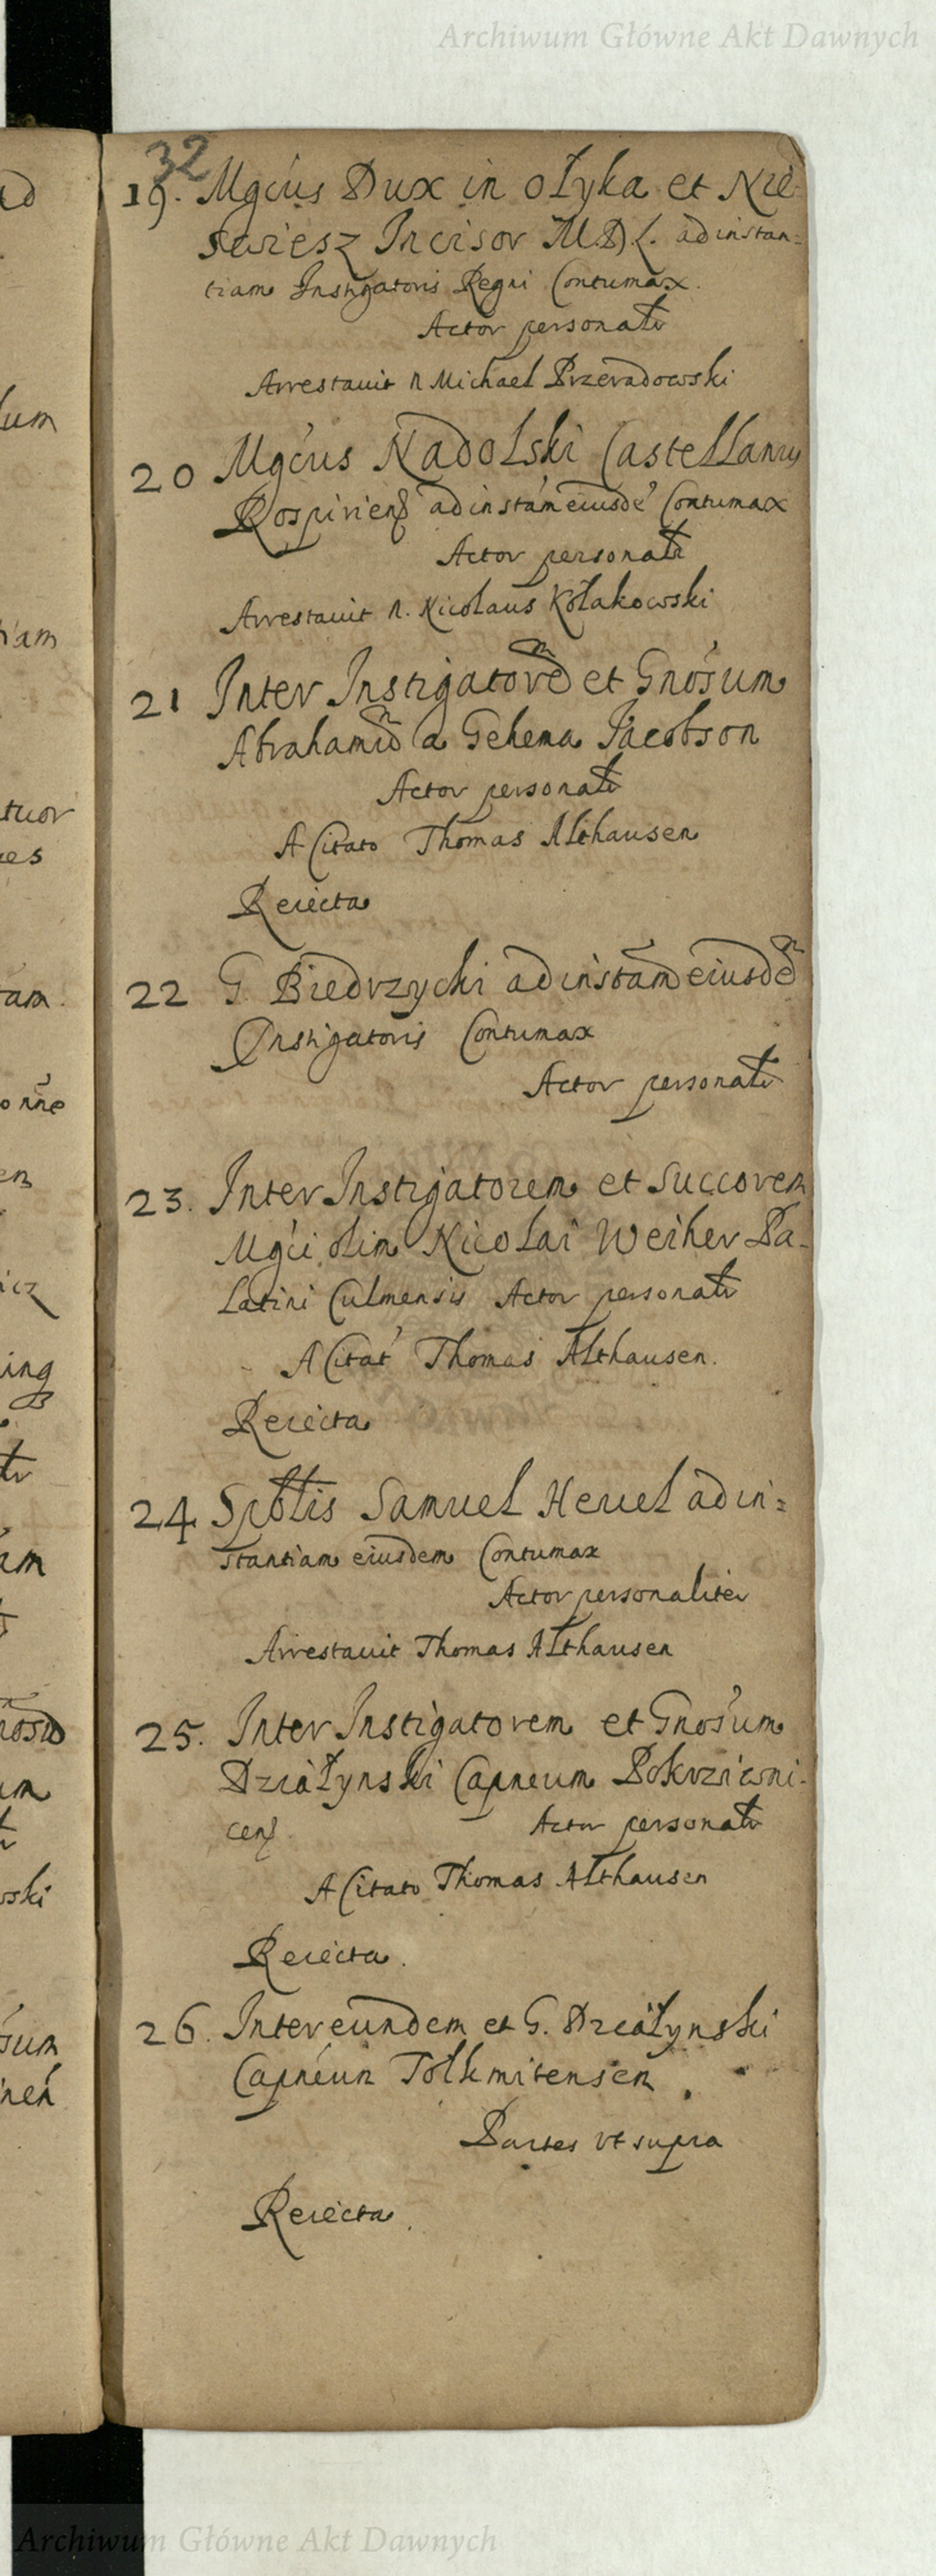 Archiwum Główne Akt Dawnych
32
19. Mgcus Dux in Ołyka et Nie-
swiesz Incisor M.D.L. ad instan=
tiam Instigatoris Regni Contumax.
Actor personalr
Arrestauit n Michael Przeradowski
20 Mgcus Nadolski Castellanus
Rospiriens ad instam eiusde Contumax
Actor personalr
Arrestauit n. Nicolaus Kołakowski
21 Inter Instigatore et Gnosum
Abrahamū a Gehema Jacobson
Actor personalr
A Citato Thomas Althausen
Reiecta
22 G. Biedrzycki ad instam eiusde
Instigatoris Contumax
Actor personalr
23. Inter Instigatorem et Succorem
Mgci olim Nicolai Weiher Pa-
latini Culmensis Actor personalr
A Citat Thomas Althausen.
Reiecta
24 Spbtis Samuel Heuel ad in=
stantiam eiusdem Contumax
Actor personaliter
Arrestauit Thomas Althausen
25. Inter Instigatorem et Gnosum
Działynski Capneum Pokrziwni-
cens Actor personalr
A Citato Thomas Althausen
Reiecta.
26. Inter eundem et G. Działynski
Capneum Tolkmitensen.
Partes vt supra
Reiecta.
Archiwum Główne Akt Dawnych